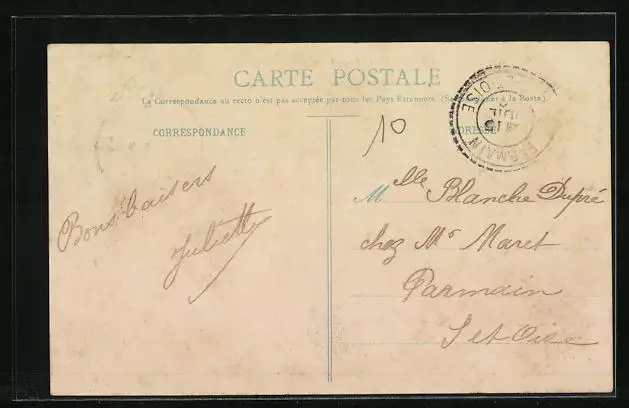 CARTE POSTALE
La Correspondance au recto n'est pas acceptée par tous les Pays Etrangers. (Se renseigner à la Poste).
CORRESPONDANCE
ADRESSE
10
PARMAIN
OISE
Bons baisers
Juliette
Mlle Blanche Dupré
chez Mr Maret
Parmain
S et Oise